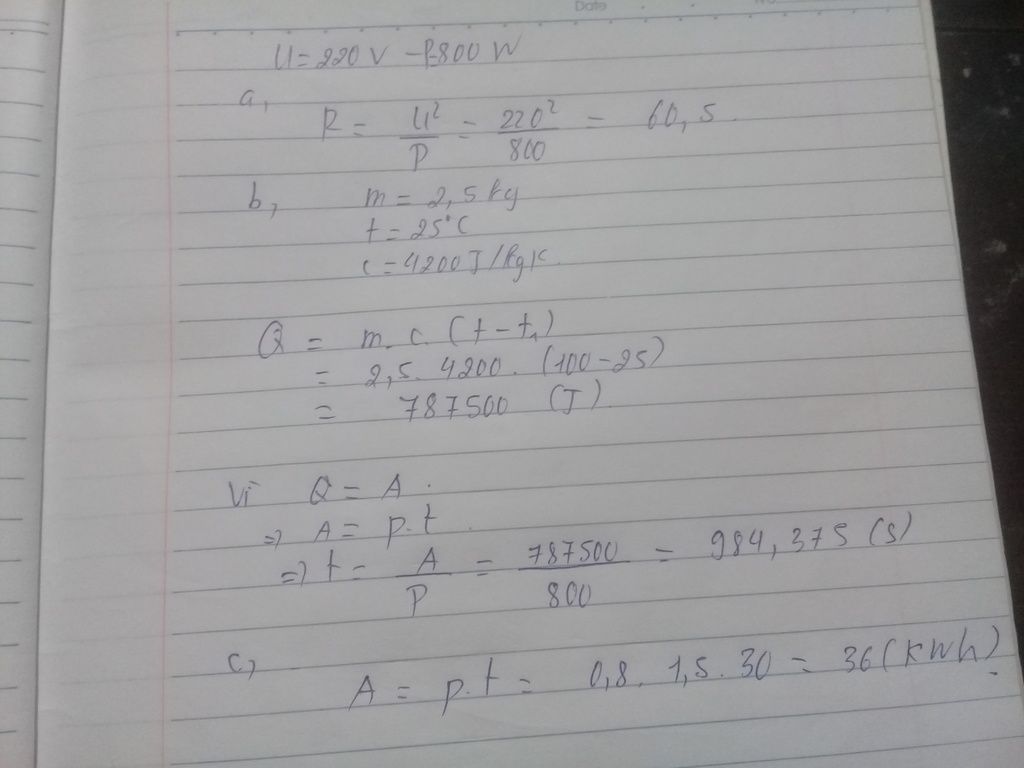 Date
U = 220 V - P = 800 W
a,
R = U²/P = 220²/800 = 60,5.
b, m = 2,5 kg
t = 25°C
c = 4200 J/kgK
Q = m.c.(t-t₁)
= 2,5. 4200. (100-25)
= 787500 (J)
Vì Q = A.
=> A = p.t
=> t = A/P = 787500/800 = 984,375 (s)
c,
A = p.t = 0,8. 1,5. 30 = 36 (KWh).